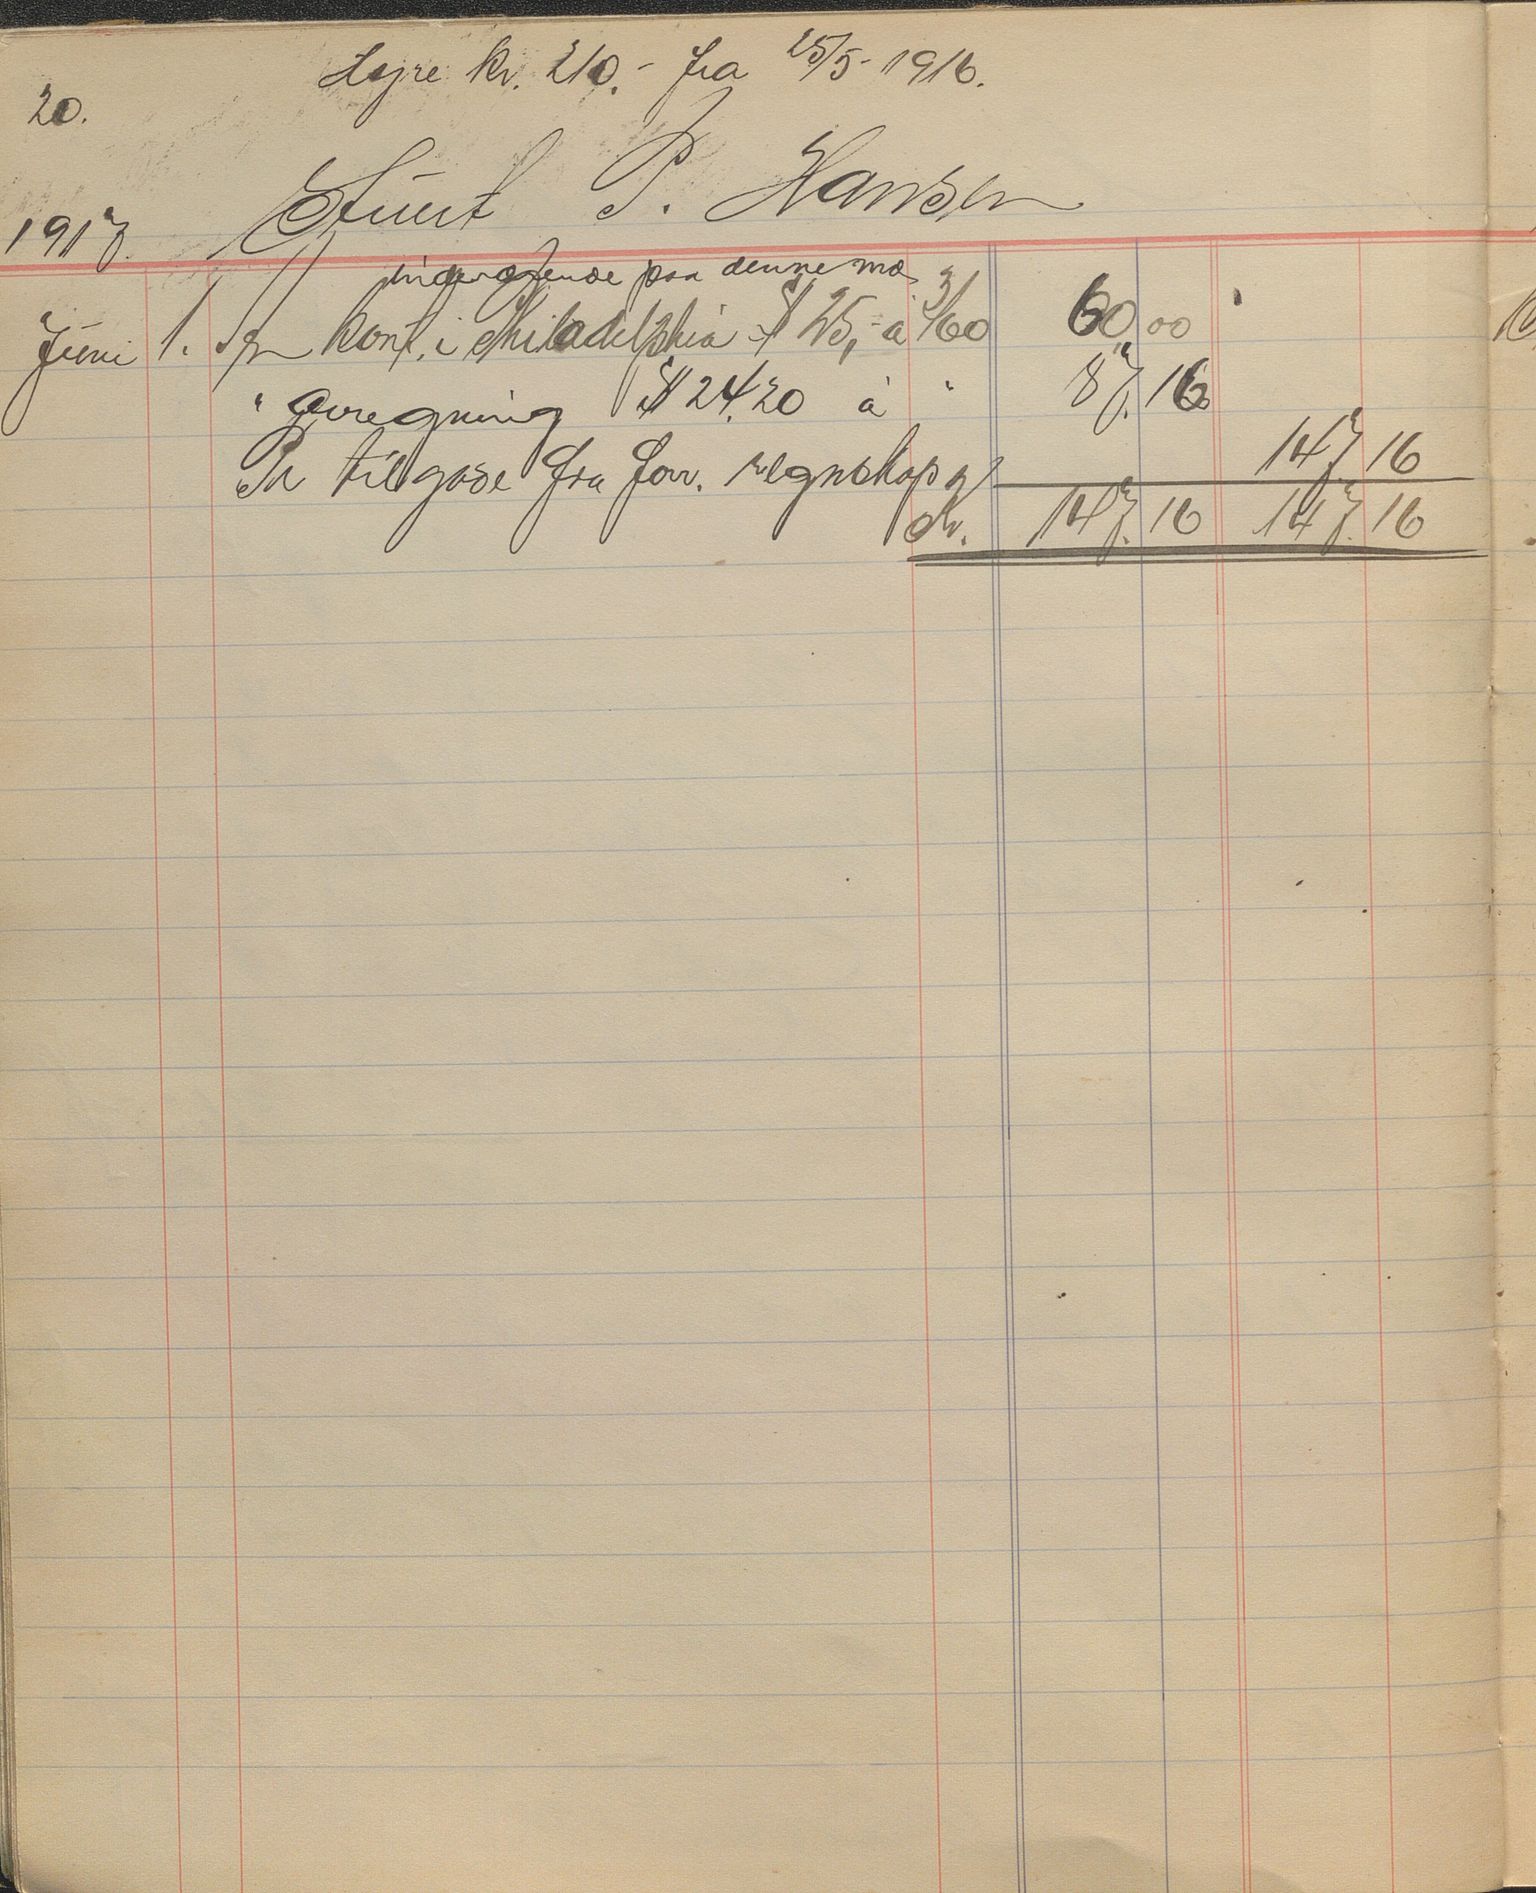 Hyre kr. 210.- fra 25/5-1916.
20.
Stuert P. Hansen
1917.
paa denne
Juni 1. Pr kont. i Philadelphia $ 25,- à 3/60 60 00
" avregning $ 24.20 à " 87. 16
Pr tilgode fra forr. regnskap 147 16
Kr. 147. 16 147. 16